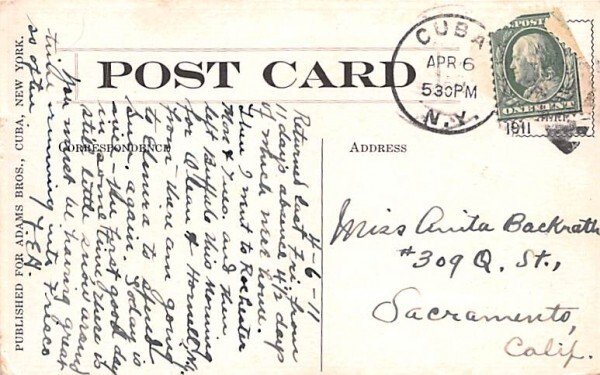 POST CARD
CUBA
APR 6
530PM
N.Y.
1911
POST
ONE CENT
CORRESPONDENCE
ADDRESS
PUBLISHED FOR ADAMS BROS., CUBA, NEW YORK.
4-6-11
Returned last Fri. from
11 days absence, 4 1/2 days
of which was home.
Then I went to Rochester
Mon & Tues. and then
left Buffalo this Morning
for Olean & Hornell N.Y.
from there am going
to Elmira to spend
Sun. again. Today is
nice - the first good day
in some time. There is
still a little snow around
You must be having great
time running into Frisco
so often.
Miss Anita Backrath
#309 Q. St.,
Sacramento,
Calif.